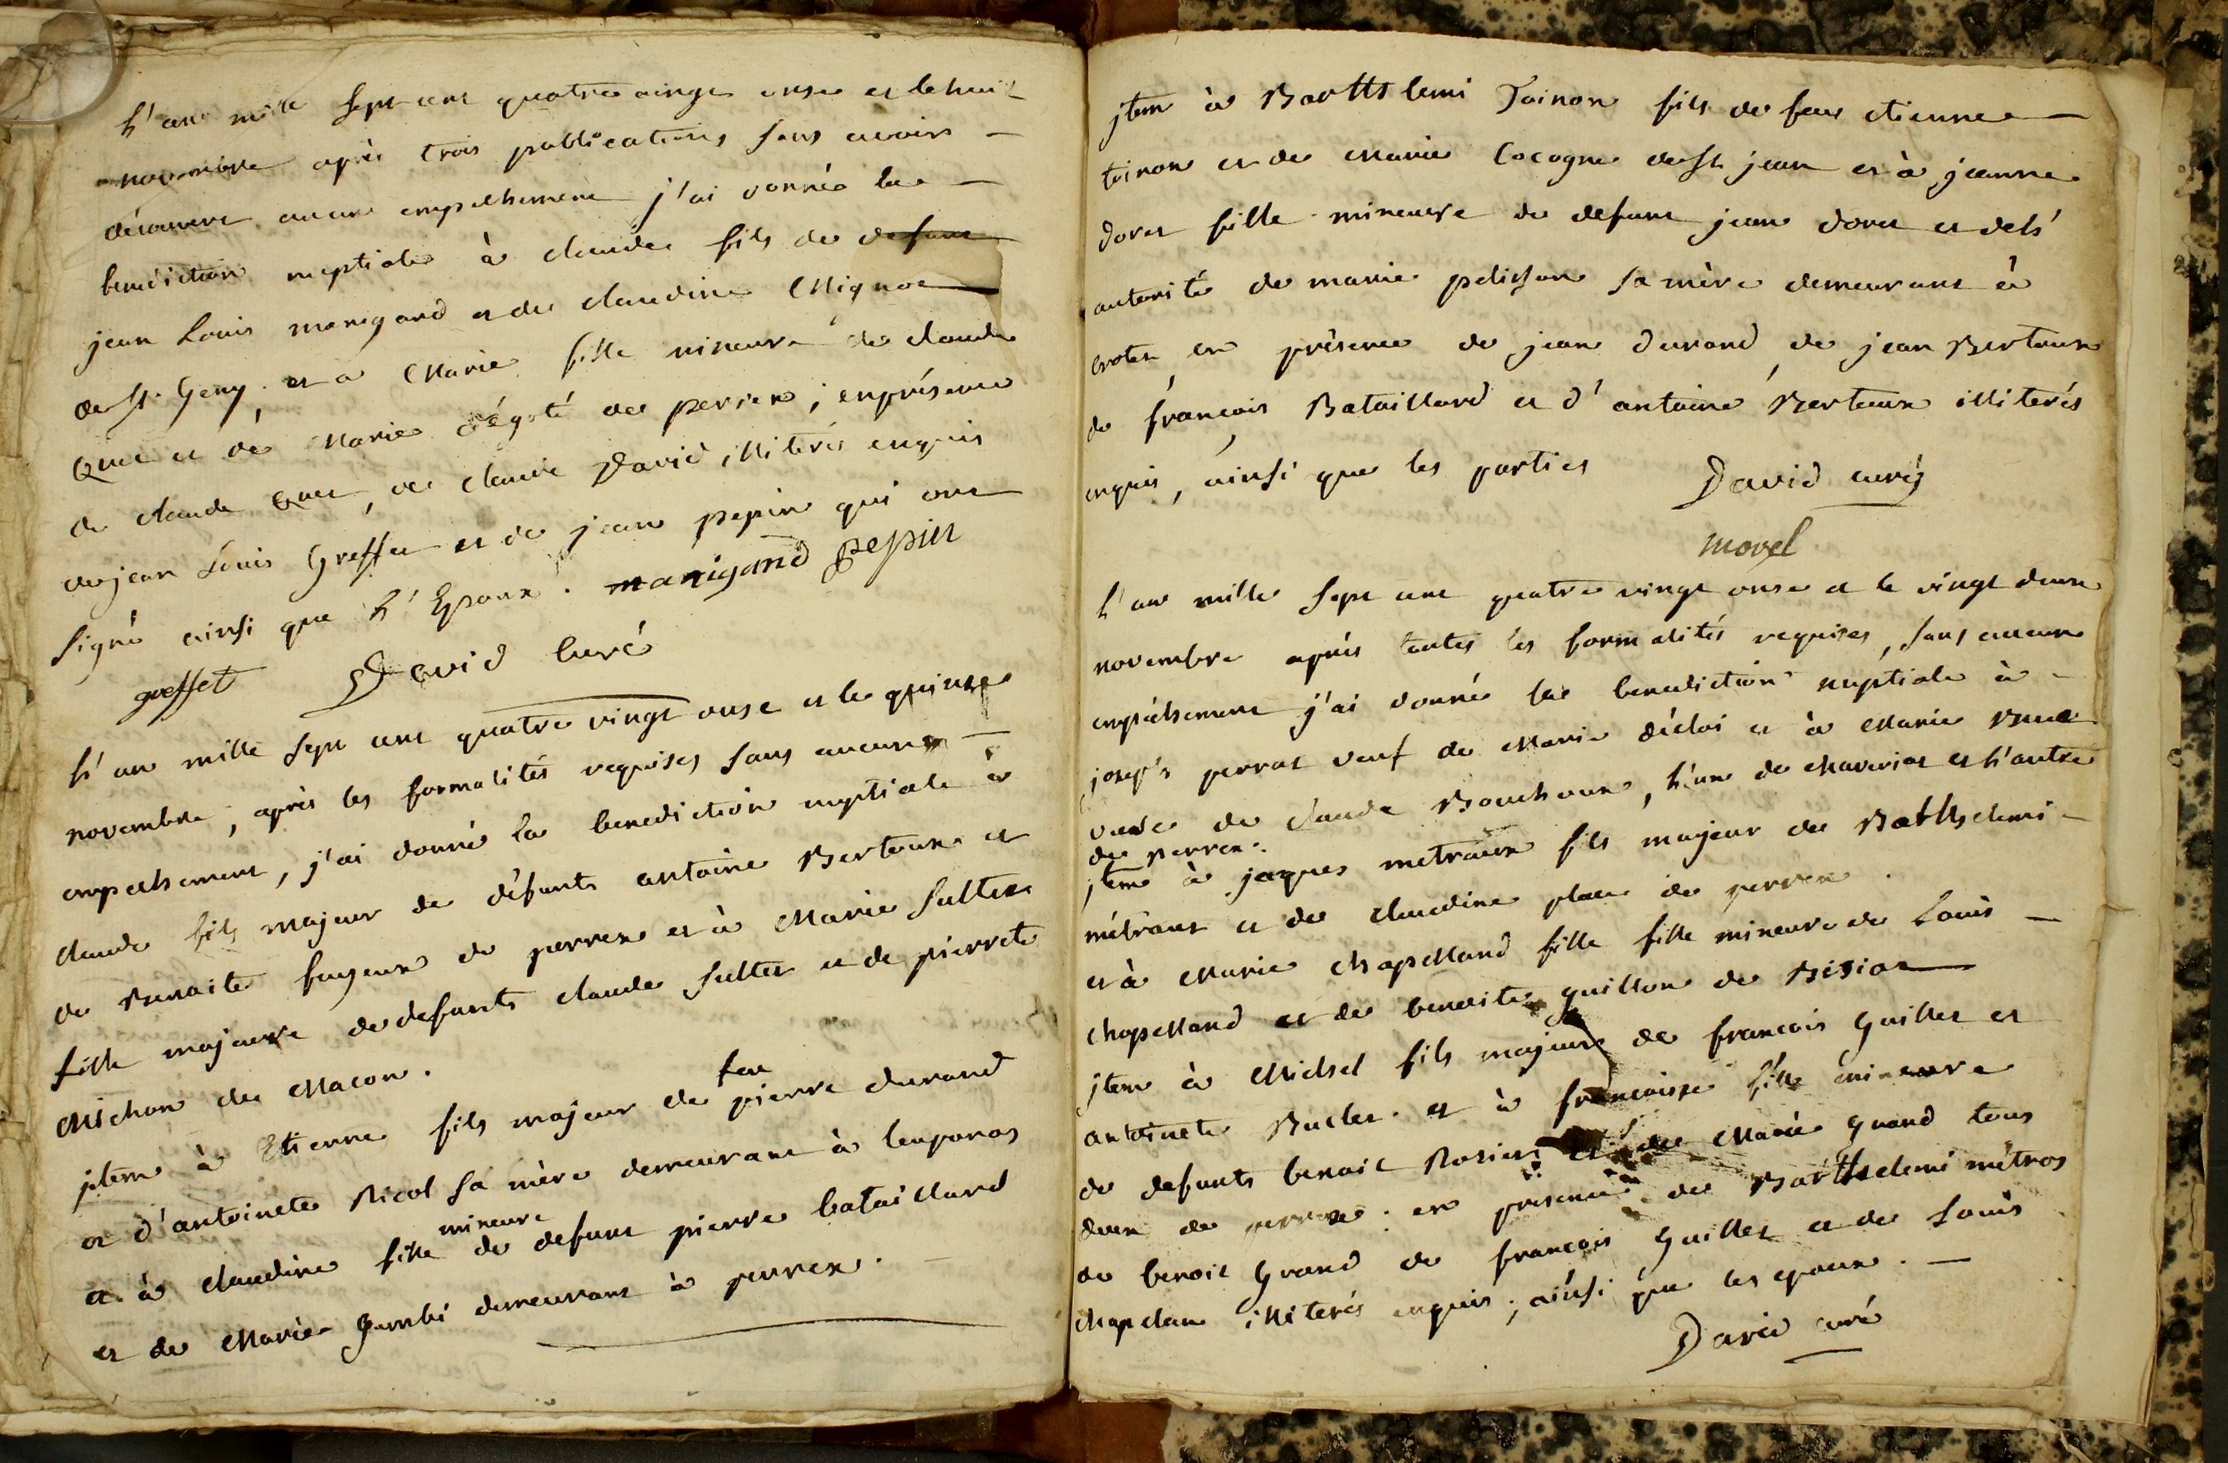 L'an mille sept cent quatre vingt onse et le huit
novembre après trois publications sans avoir
découvert aucun empechement j'ai donné la
benediction nuptiale à claude fils de defunt
jean Louis manigand et de claudine Mignot
de St Geny, et à Marie fille mineure de claude
Quet et de Marie dégoté de perrex ; en présence
de claude Quet, de claude David illiterés enquis
de jean Louis Greffet et de jean pepin qui ont
signé ainsi que L'Epoux. manigand pepin
greffet David Curé
L'an mille sept cent quatre vingt onse et le quinse
novembre, après les formalités requises sans aucun
empechement, j'ai donné la benediction nuptiale à
claude fils majeur de défunts antoine Berteaux et
de Benoite fayeux de perrex et à Marie Sultet
fille majeure de defunts claude Sultet et de pierrete
Michon de Macon.
jtem à Etienne fils majeur de feu pierre durand
et d'antoinete Nicol sa mère demeurant à
et à claudine fille mineure de defunt pierre bataillard
et de Marie Gambi demeurant à perrex.
jtem à Barthslemi Toinon fils de feu etienne
toinon et de Marie Cocogne de St jean et à jeanne
doret fille mineure de defunt jean doret et de l'
autorité de marie pelisson sa mère demeurant à
crotet en présence de jean durand, de jean Berteaux
de françois Bataillard et d'antoine Berteaux illiterés
enquis, ainsi que les parties David curé
morel
L'an mille sept cent quatre vingt onse et le vingt deux
novembre après toutes les formalités requises, sans aucun
empêchement j'ai donné la benediction nuptiale à
joseph perrat veuf de Marie déclai et à Marie
veuve de claude Bouchoux, l'un de chaveriat et l'autre
de perrex.
jtem à jaques metraux fils majeur de Bathselemi
métraux et de claudine place de perrex.
et à Marie chapelland fille fille mineure de Louis
chapelland et de benoite guillon de Bisiat
jtem à Michel fils majeur de françois Guillet et
antoinete Buclet et à françoisse fille mineure
de defunts benoit Rosier et de Marie grand tous
deux de perrex. en présence de Barthselemi métros
de benoit Grand de françois Guillet et de Louis
chapelan illiterés enquis, ainsi que les epoux.
David curé